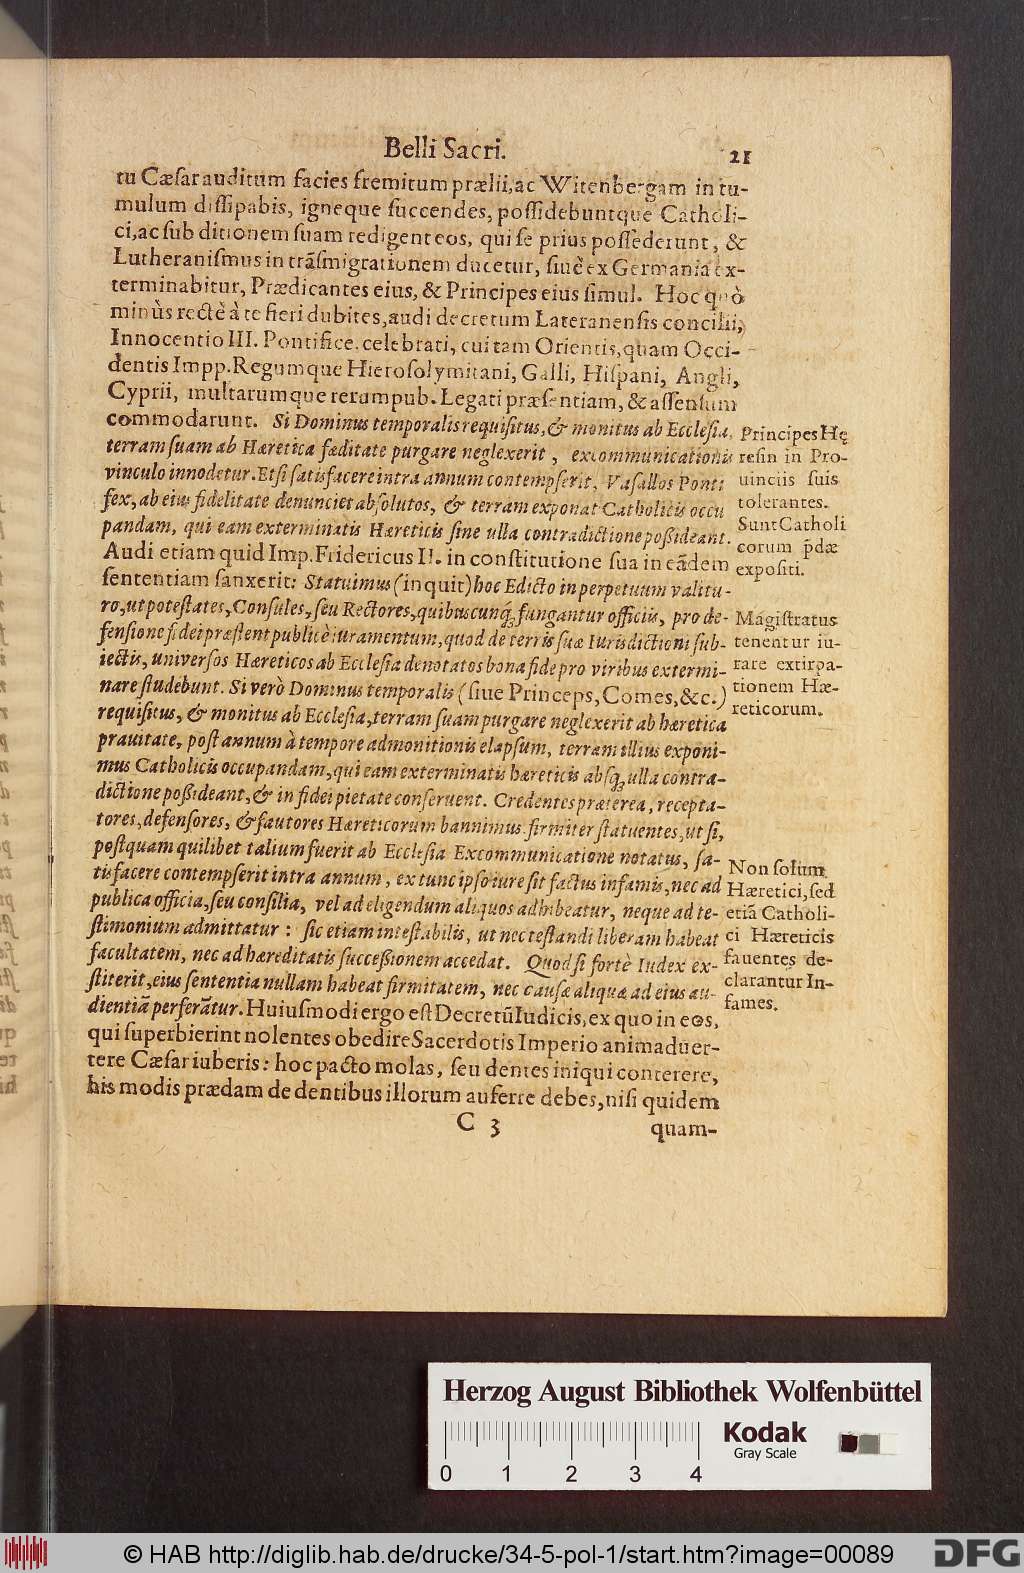 Belli Sacri. 21
tu Cæsar auditum facies fremitum prælii, ac Witenbergam in tu-
mulum dissipabis, igneque succendes, possidebuntque Catholi-
ci, ac sub ditionem suam redigent eos, qui se prius possederunt, &
Lutheranismus in trãsmigrationem ducetur, siuè ex Germania ex-
terminabitur, Prædicantes eius, & Principes eius simul. Hoc quò
minùs rectè à te fieri dubites, audi decretum Lateranensis concilii,
Innocentio III. Pontifice celebrati, cui tam Orientis, quam Occi-
dentis Impp. Regumque Hierosolymitani, Galli, Hispani, Angli,
Cyprii, multarumque rerumpub. Legati præsentiam, & assensum
commodarunt. Si Dominus temporalis requisitus, & monitus ab Ecclesia,
terram suam ab Hæretica fæditate purgare neglexerit, excommunicationis
vinculo innodetur. Et si satisfacere intra annum contempserit, Vasallos Ponti
fex, ab eius fidelitate denunciet absolutos, & terram exponat Catholicis occu
pandam, qui eam exterminatis Hæreticis sine ulla contradictione poßideant.
Audi etiam quid Imp. Fridericus II. in constitutione sua in eãdem
sententiam sanxerit: Statuimus (inquit) hoc Edicto in perpetuum valitu-
ro, ut potestates, Consules, seu Rectores, quibuscunq; fungantur officiis, pro de-
fensione fidei præstent publicè iuramentum, quod de terris suæ Iurisdictioni sub-
iectis, universos Hæreticos ab Ecclesia denotatos bona fide pro viribus extermi-
nare studebunt. Si verò Dominus temporalis (siue Princeps, Comes, &c.)
requisitus, & monitus ab Ecclesia, terram suam purgare neglexerit ab hæretica
prauitate, post annum à tempore admonitionis elapsum, terram illius exponi-
mus Catholicis occupandam, qui eam exterminatis hæreticis absq; ulla contra-
dictione poßideant, & in fidei pietate conseruent. Credentes præterea, recepta-
tores, defensores, & fautores Hæreticorum bannimus firmiter statuentes, ut si,
postquam quilibet talium fuerit ab Ecclesia Excommunicatione notatus, sa-
tisfacere contempserit intra annum, ex tunc ipso iure sit factus infamis, nec ad
publica officia, seu consilia, vel ad eligendum aliquos adhibeatur, neque ad te-
stimonium admittatur: sic etiam intestabilis, ut nec testandi liberam habeat
facultatem, nec ad hæreditatis succeßionem accedat. Quod si fortè Iudex ex-
stiterit, eius sententia nullam habeat firmitatem, nec causæ aliquæ ad eius au-
dientiã perferãtur. Huiusmodi ergo est Decretũ Iudicis, ex quo in eos,
qui superbierint nolentes obedire Sacerdotis Imperio animaduer-
tere Cæsar iuberis: hoc pacto molas, seu dentes iniqui conterere,
his modis prædam de dentibus illorum auferre debes, nisi quidem
C 3 quam-
Principes Hę
resin in Pro-
uinciis suis
tolerantes.
Sunt Catholi
corum p̃dæ
expositi.
Magistratus
tenentur iu-
rare extirpa-
tionem Hæ-
reticorum.
Non solum
Hæretici, sed
etiã Catholi-
ci Hæreticis
fauentes de-
clarantur In-
fames.
Herzog August Bibliothek Wolfenbüttel
0 1 2 3 4
Kodak
Gray Scale
© HAB http://diglib.hab.de/drucke/34-5-pol-1/start.htm?image=00089
DFG